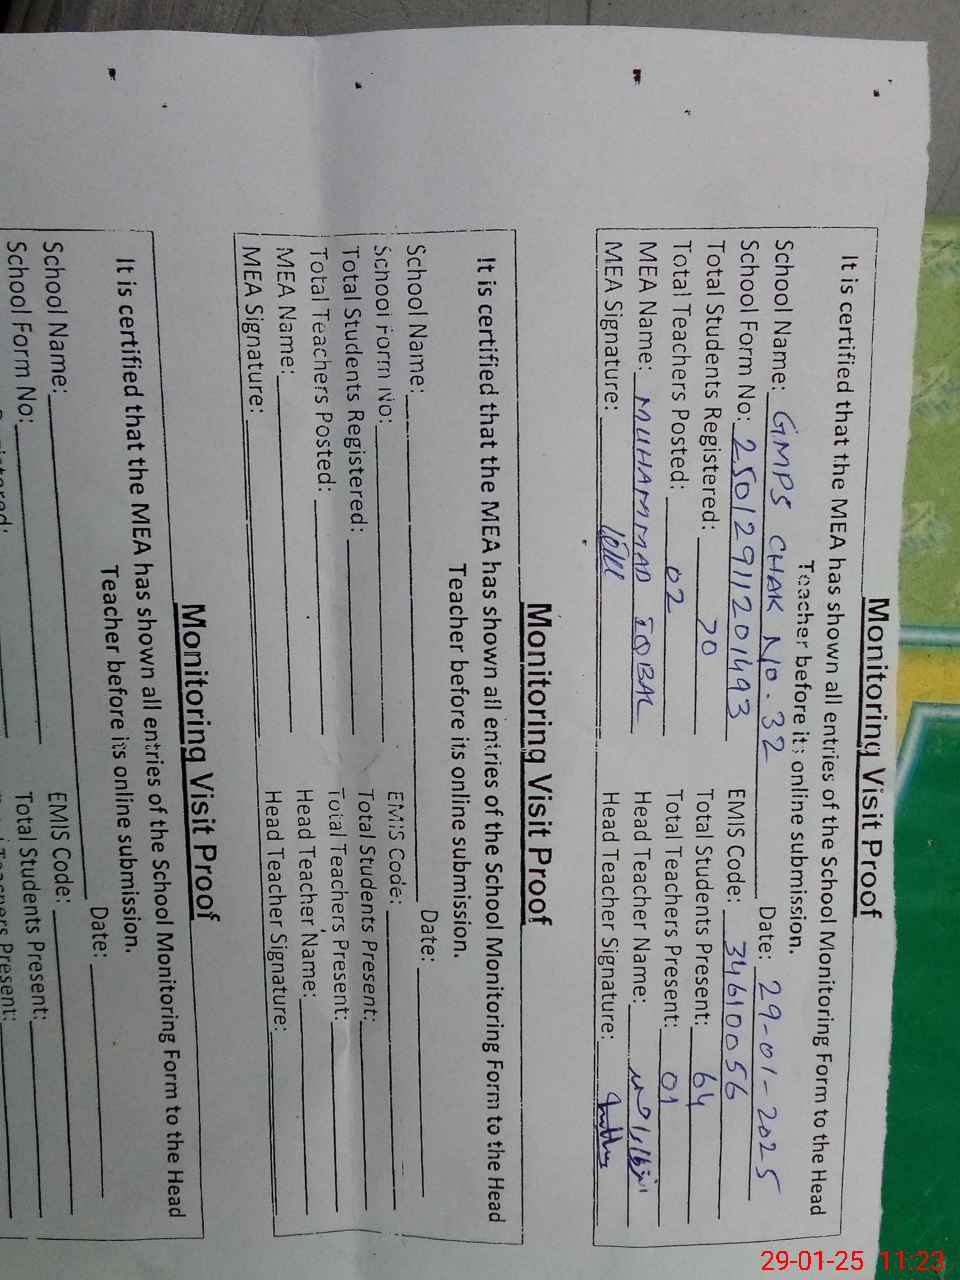 Monitoring Visit Proof
It is certified that the MEA has shown all entries of the School Monitoring Form to the Head
Teacher before its online submission.
School Name: GMPS CHAK NO. 32 Date: 29-01-2025
School Form No: 25012911201493 EMIS Code: 34610056
Total Students Registered: 70 Total Students Present: 64
Total Teachers Posted: 02 Total Teachers Present: 01
MEA Name: MUHAMMAD IQBAL Head Teacher Name:
MEA Signature: Head Teacher Signature:
Monitoring Visit Proof
It is certified that the MEA has shown all entries of the School Monitoring Form to the Head
Teacher before its online submission.
School Name: Date:
School Form No: EMIS Code:
Total Students Registered: Total Students Present:
Total Teachers Posted: Total Teachers Present:
MEA Name: Head Teacher Name:
MEA Signature: Head Teacher Signature:
Monitoring Visit Proof
It is certified that the MEA has shown all entries of the School Monitoring Form to the Head
Teacher before its online submission.
School Name: Date:
School Form No: EMIS Code:
Total Students Present:
29-01-25 11:23